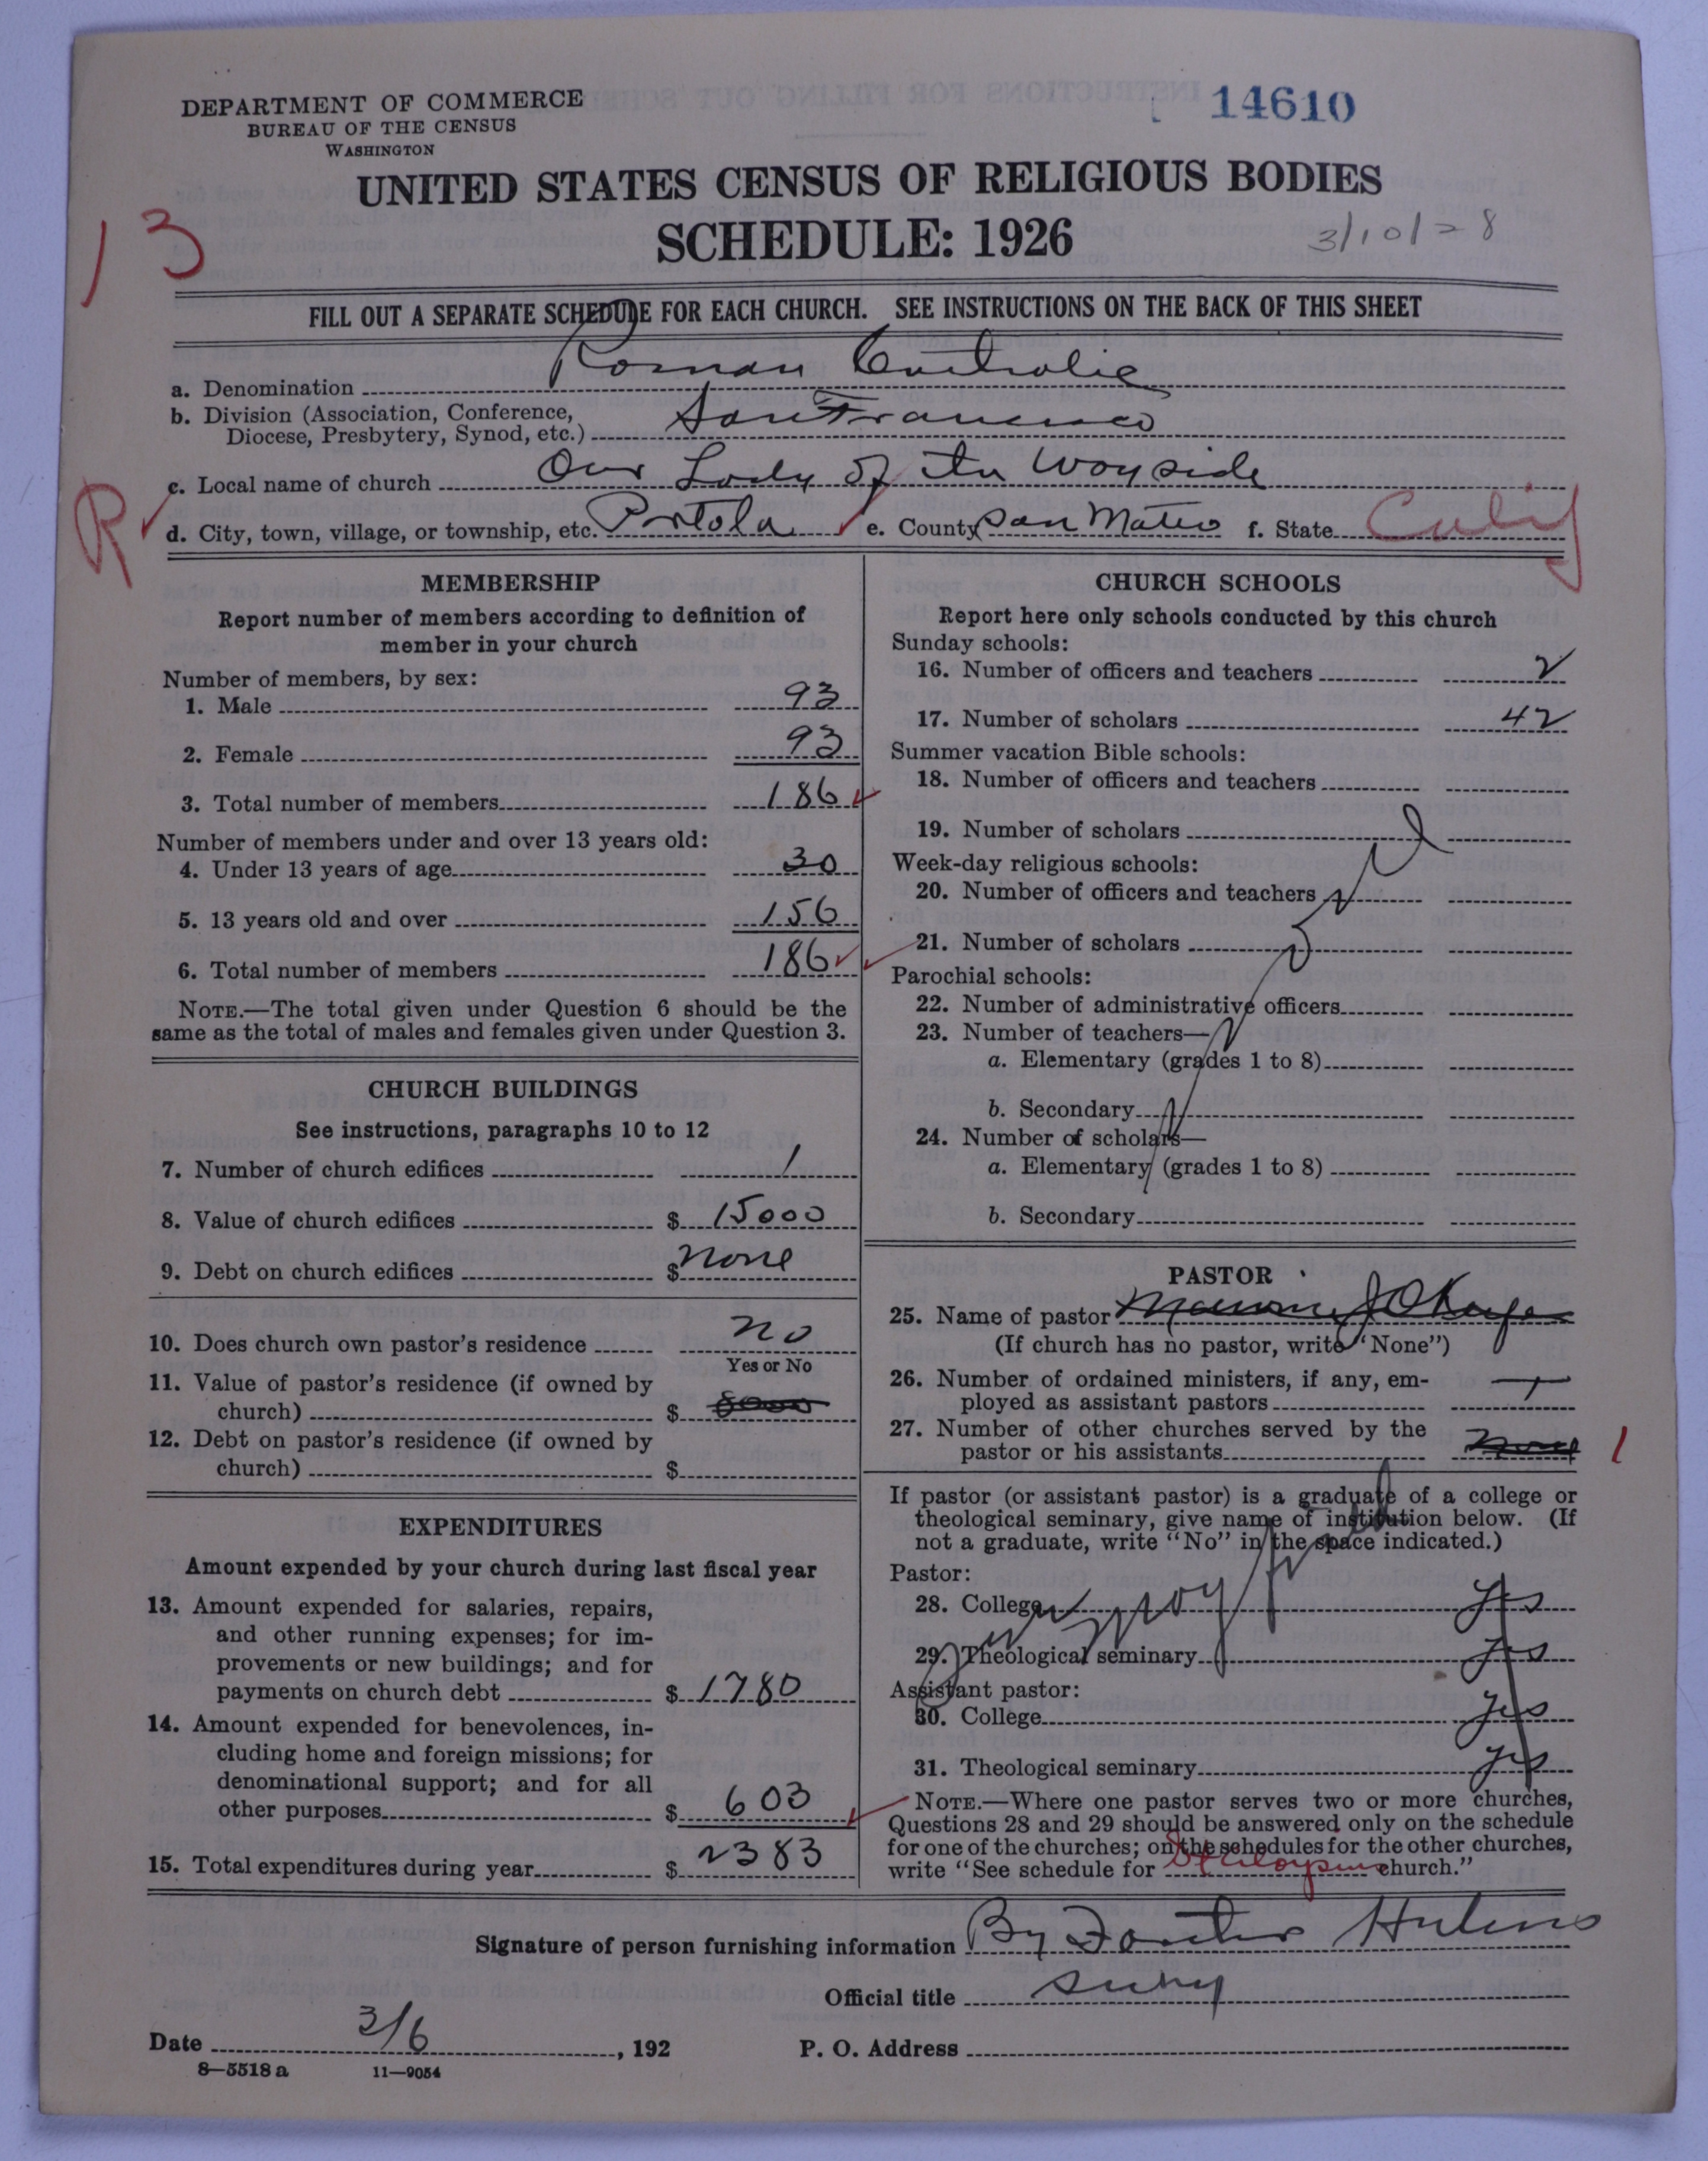 DEPARTMENT OF COMMERCE
BUREAU OF THE CENSUS
WASHINGTON
14610
UNITED STATES CENSUS OF RELIGIOUS BODIES
SCHEDULE: 1926
13
3/10/28
FILL OUT A SEPARATE SCHEDULE FOR EACH CHURCH. SEE INSTRUCTIONS ON THE BACK OF THIS SHEET
a. Denomination Roman Catholic
b. Division (Association, Conference, Diocese, Presbytery, Synod, etc.) San Francisco
c. Local name of church Our Lady of the Wayside
R
d. City, town, village, or township, etc. Portola e. County San Mateo f. State Calif
MEMBERSHIP
Report number of members according to definition of
member in your church
Number of members, by sex:
1. Male 93
2. Female 93
3. Total number of members 186
Number of members under and over 13 years old:
4. Under 13 years of age 30
5. 13 years old and over 156
6. Total number of members 186
NOTE.—The total given under Question 6 should be the
same as the total of males and females given under Question 3.
CHURCH BUILDINGS
See instructions, paragraphs 10 to 12
7. Number of church edifices 1
8. Value of church edifices $ 15000
9. Debt on church edifices $ none
10. Does church own pastor's residence no
Yes or No
11. Value of pastor's residence (if owned by
church) $ 8000
12. Debt on pastor's residence (if owned by
church) $
EXPENDITURES
Amount expended by your church during last fiscal year
13. Amount expended for salaries, repairs,
and other running expenses; for im-
provements or new buildings; and for
payments on church debt $ 1780
14. Amount expended for benevolences, in-
cluding home and foreign missions; for
denominational support; and for all
other purposes $ 603
15. Total expenditures during year $ 2383
CHURCH SCHOOLS
Report here only schools conducted by this church
Sunday schools:
16. Number of officers and teachers 2
17. Number of scholars 42
Summer vacation Bible schools:
18. Number of officers and teachers
19. Number of scholars
Week-day religious schools:
20. Number of officers and teachers
21. Number of scholars
Parochial schools:
22. Number of administrative officers
23. Number of teachers—
a. Elementary (grades 1 to 8)
b. Secondary
24. Number of scholars—
a. Elementary (grades 1 to 8)
b. Secondary
PASTOR
25. Name of pastor
(If church has no pastor, write "None")
26. Number of ordained ministers, if any, em-
ployed as assistant pastors
27. Number of other churches served by the
pastor or his assistants none 1
If pastor (or assistant pastor) is a graduate of a college or
theological seminary, give name of institution below. (If
not a graduate, write "No" in the space indicated.)
Pastor:
28. College yes
29. Theological seminary yes
Assistant pastor:
30. College yes
31. Theological seminary yes
NOTE.—Where one pastor serves two or more churches,
Questions 28 and 29 should be answered only on the schedule
for one of the churches; on the schedules for the other churches,
write "See schedule for St Aloysius church."
Signature of person furnishing information By
Official title
Date 3/6, 192
P. O. Address
8—5518 a 11—9054